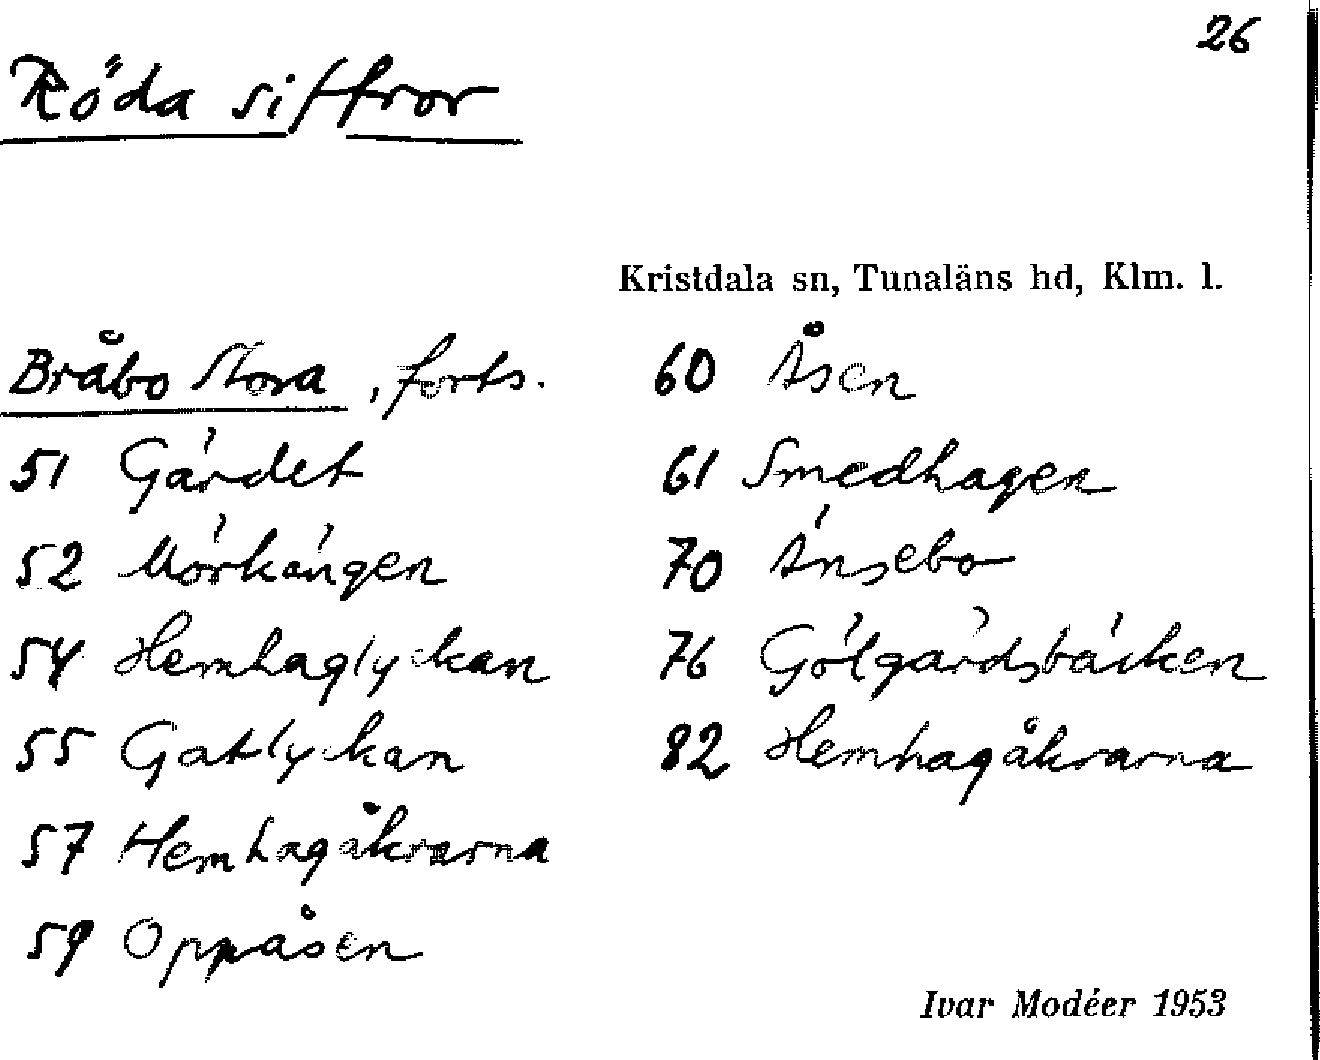 26
Röda siffror
Kristdala sn, Tunaläns hd, Klm. l.
Bråbo Stora, forts.
51 Gärdet
52 Mörkängen
54 Hemhaglyckan
55 Gatlyckan
57 Hemhagåkrarna
59 Oppåsen
60 Åsen
61 Smedhagen
70 Änsebo
76 Gölgärdsbäcken
82 Hemhagåkrarna
Ivar Modéer 1953